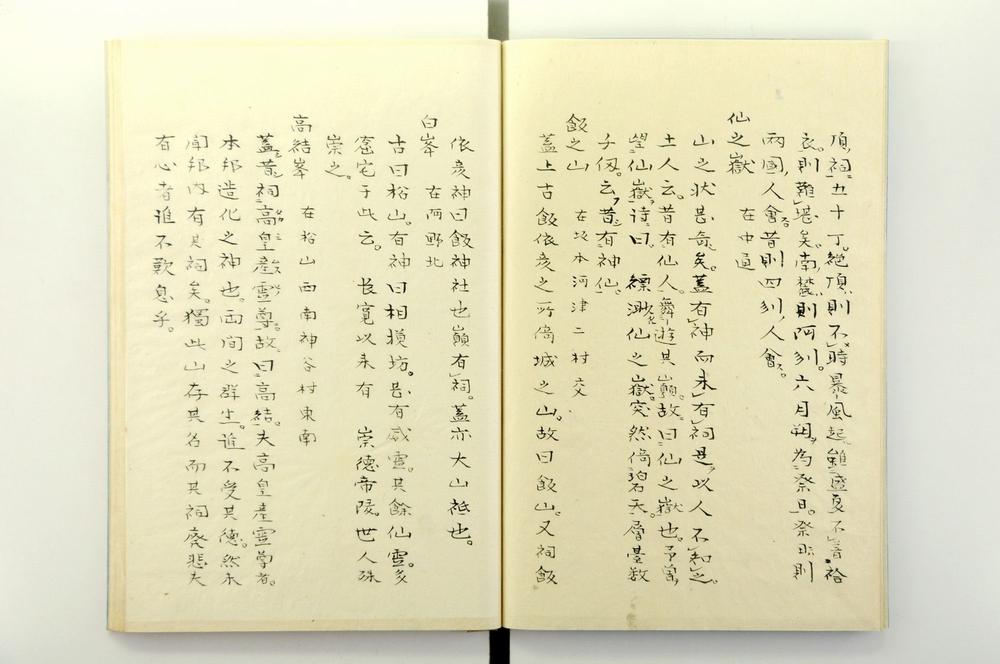 頂祠五十丁。絶頂則不時暴風起。雖盛夏不着袷
衣。則難堪矣。南麓則阿刕。六月朔為祭日。祭日則
兩國人會。昔則四刕人會。
仙之嶽 在中通
山之状甚奇矣。蓋有神而未有祠。是以人不知之。
土人云。昔有仙人。舞遊其巔。故曰仙之嶽也。予嘗
望仙嶽詩曰。縹渺仙之嶽。突然倚碧天。層臺数
千仭。云昔有神仙。
飯之山 在坂本河津二村交
蓋上古飯依彦之所倚城之山。故曰飯山。又祠飯
依彦神曰飯神社也巔有祠。蓋亦大山祇也。
白峯 在阿野北
古曰松山。有神曰相模坊。甚有威靈。其餘仙靈。多
窟宅于此云。 長寛以来有 崇德帝陵。世人殊
崇之。
高結峯 在松山西南神谷村東南
蓋昔祠高皇産靈尊。故曰高結。夫高皇産靈尊者。
本邦造化之神也。両間之群生。誰不受其德。然未
聞邦内有其祠矣。獨此山存其名而其祠廃悲夫
有心者誰不歎息乎。